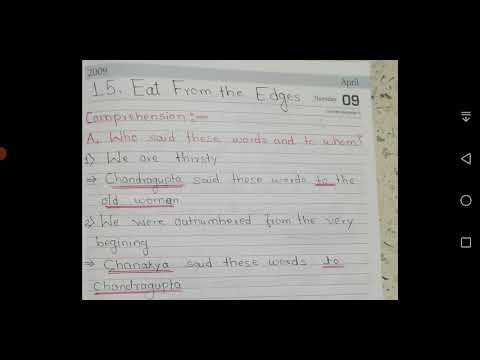 2009
April
Thursday 09
15. Eat From the Edges
Comprehension :-
A. Who said these words and to whom?
1) We are thirsty
⇒ Chandragupta said these words to the
old woman
2) We were outnumbered from the very
begining
⇒ Chanakya said these words to
Chandragupta